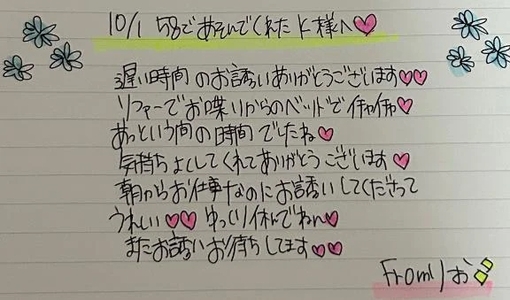 10/1 58であそんでくれた K様へ♡
遅い時間のお誘いありがとうございます♡♡
ソファーでお喋りからのベットでイチャイチャ♡
あっという間の時間でしたね♡
気持ちよくしてくれてありがとうございます♡
朝からお仕事なのにお誘いしてくださって
うれしい♡♡ ゆっくり休んでねん♡
またお誘いお待ちしてます♡♡
From りお